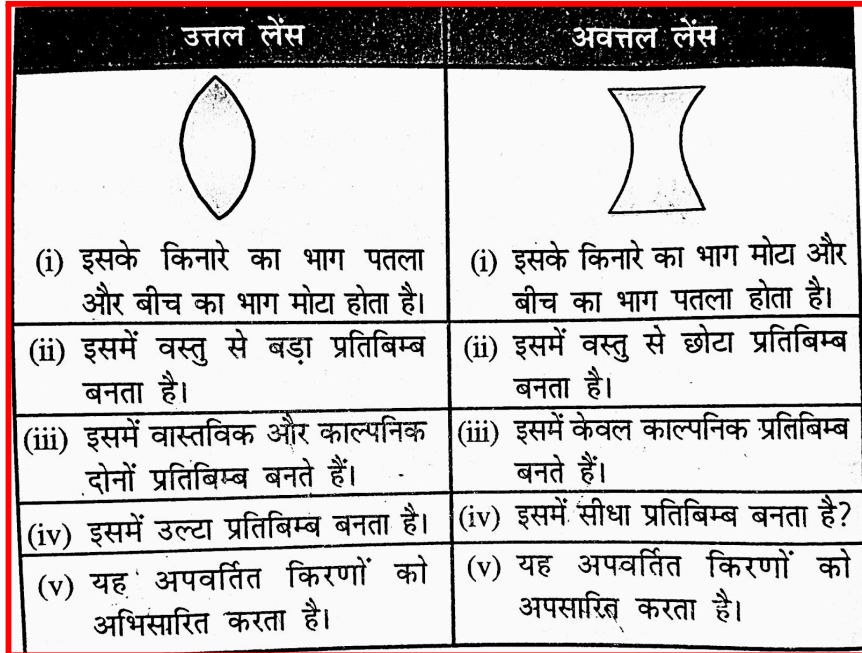 उत्तल लेंस
अवत्तल लेंस
(i) इसके किनारे का भाग पतला
और बीच का भाग मोटा होता है।
(i) इसके किनारे का भाग मोटा और
बीच का भाग पतला होता है।
(ii) इसमें वस्तु से बड़ा प्रतिबिम्ब
बनता है।
(ii) इसमें वस्तु से छोटा प्रतिबिम्ब
बनता है।
(iii) इसमें वास्तविक और काल्पनिक
दोनों प्रतिबिम्ब बनते हैं।
(iii) इसमें केवल काल्पनिक प्रतिबिम्ब
बनते हैं।
(iv) इसमें उल्टा प्रतिबिम्ब बनता है।
(iv) इसमें सीधा प्रतिबिम्ब बनता है?
(v) यह अपवर्तित किरणों को
अभिसारित करता है।
(v) यह अपवर्तित किरणों को
अपसारित करता है।